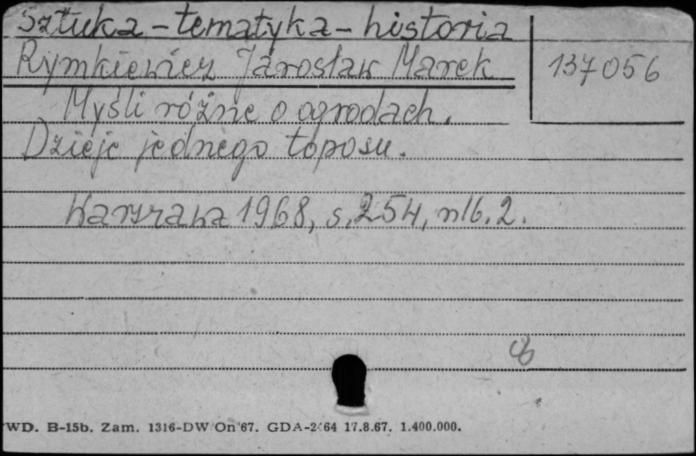 Sztuka – tematyka – historia
Rymkiewicz Jarosław Marek
137056
Myśli różne o ogrodach.
Dzieje jednego toposu.
Warszawa 1968, s. 254, nlb. 2.
WD. B-15b. Zam. 1316-DW/On/67. GDA-2/64 17.8.67. 1.400.000.